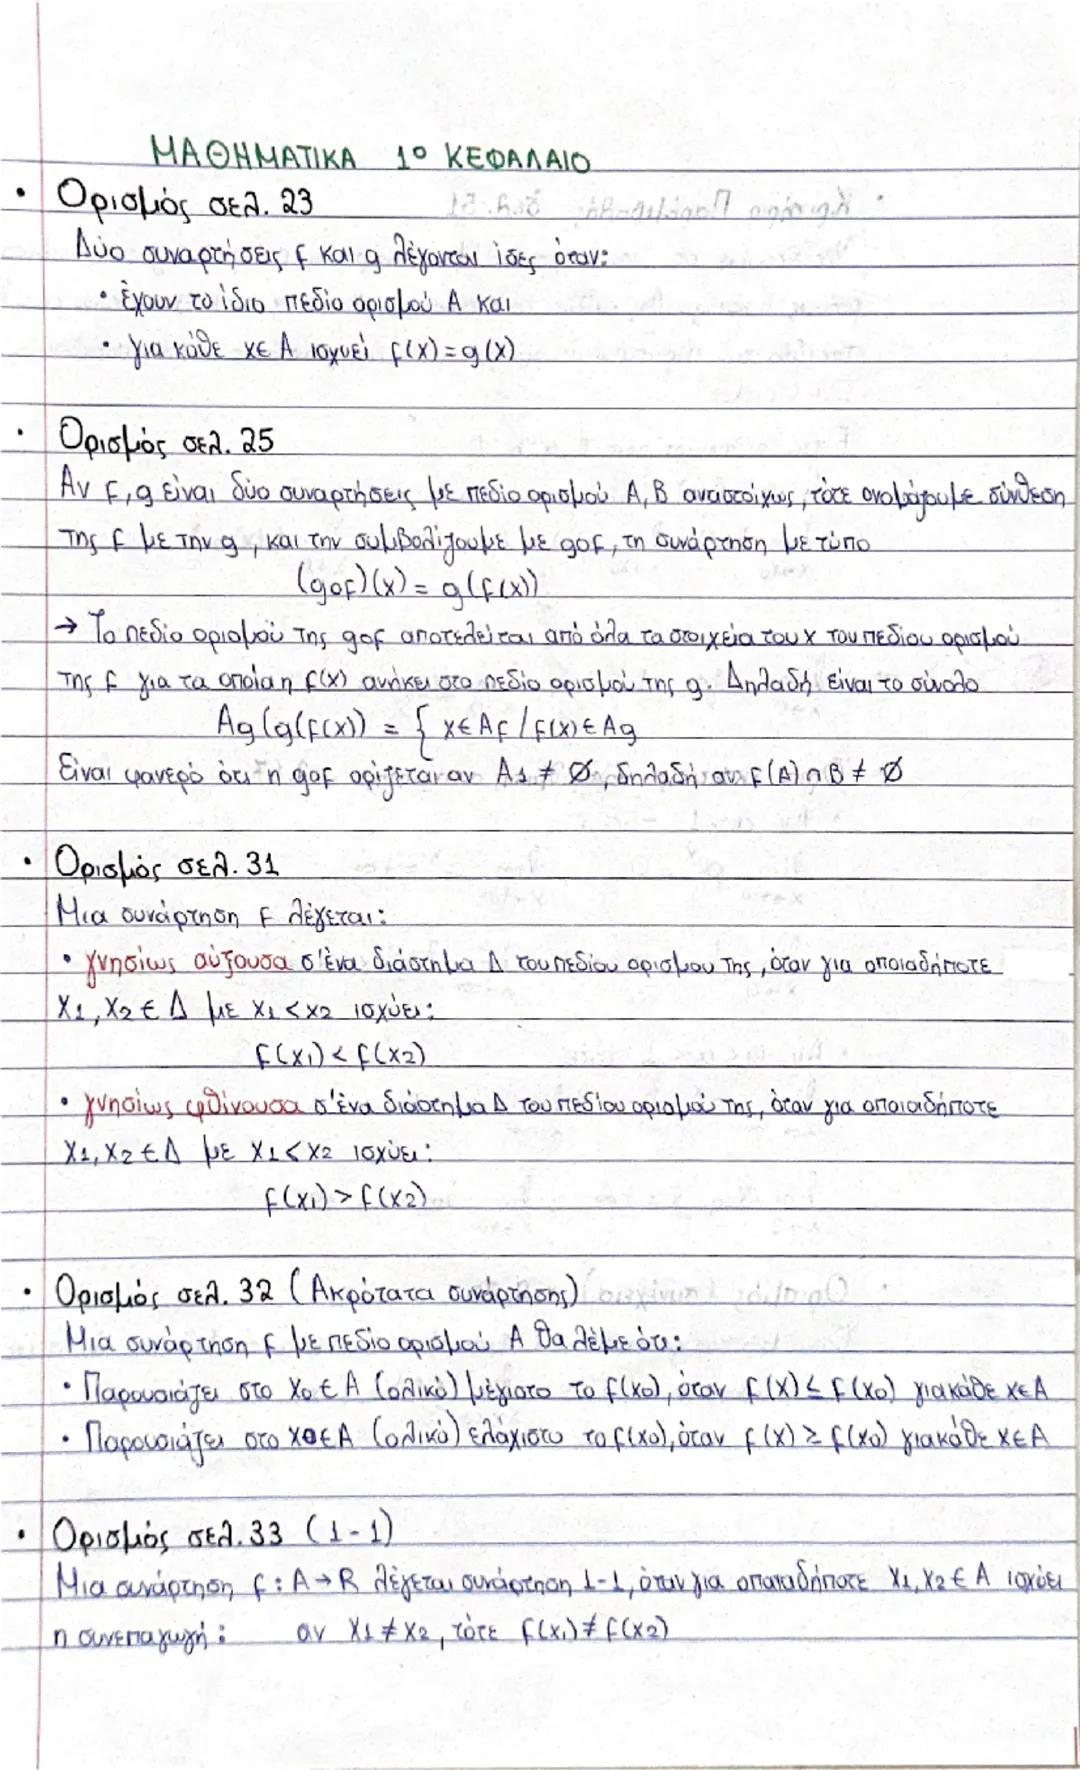 ΜΑΘΗΜΑΤΙΚΑ 1ο ΚΕΦΑΛΑΙΟ
• Ορισμός σελ. 23
Δύο συναρτήσεις f και g λέγονται ίσες όταν:
• έχουν το ίδιο πεδίο ορισμού Α και
• για κάθε x∈A ισχύει f(x)=g(x)
• Ορισμός σελ. 25
Αν f,g είναι δύο συναρτήσεις με πεδίο ορισμού Α,Β αντιστοίχως, τότε ονομάζουμε σύνθεση
της f με την g, και την συμβολίζουμε με gof, τη συνάρτηση με τύπο
(gof)(x) = g(f(x))
→ Το πεδίο ορισμού της gof αποτελείται από όλα τα στοιχεία του x του πεδίου ορισμού
της f για τα οποία η f(x) ανήκει στο πεδίο ορισμού της g. Δηλαδή είναι το σύνολο
Ag(g(f(x)) = { x∈Af / f(x)∈Ag
Είναι φανερό ότι η gof ορίζεται αν A1 ≠ Ø, δηλαδή αν f(A)∩B ≠ Ø
• Ορισμός σελ. 31
Μια συνάρτηση f λέγεται:
• γνησίως αύξουσα σ'ένα διάστημα Δ του πεδίου ορισμού της, όταν για οποιαδήποτε
x1, x2 ∈ Δ με x1 < x2 ισχύει:
f(x1) < f(x2)
• γνησίως φθίνουσα σ'ένα διάστημα Δ του πεδίου ορισμού της, όταν για οποιαδήποτε
x1, x2 ∈ Δ με x1 < x2 ισχύει:
f(x1) > f(x2)
• Ορισμός σελ. 32 (Ακρότατα συνάρτησης)
Μια συνάρτηση f με πεδίο ορισμού Α θα λέμε ότι:
• Παρουσιάζει στο x0∈A (ολικό) μέγιστο το f(x0), όταν f(x) ≤ f(x0) για κάθε x∈A
• Παρουσιάζει στο x0∈A (ολικό) ελάχιστο το f(x0), όταν f(x) ≥ f(x0) για κάθε x∈A
• Ορισμός σελ. 33 (1-1)
Μια συνάρτηση f: A→R λέγεται συνάρτηση 1-1, όταν για οποιαδήποτε x1, x2 ∈ A ισχύει
η συνεπαγωγή: αν x1 ≠ x2, τότε f(x1) ≠ f(x2)